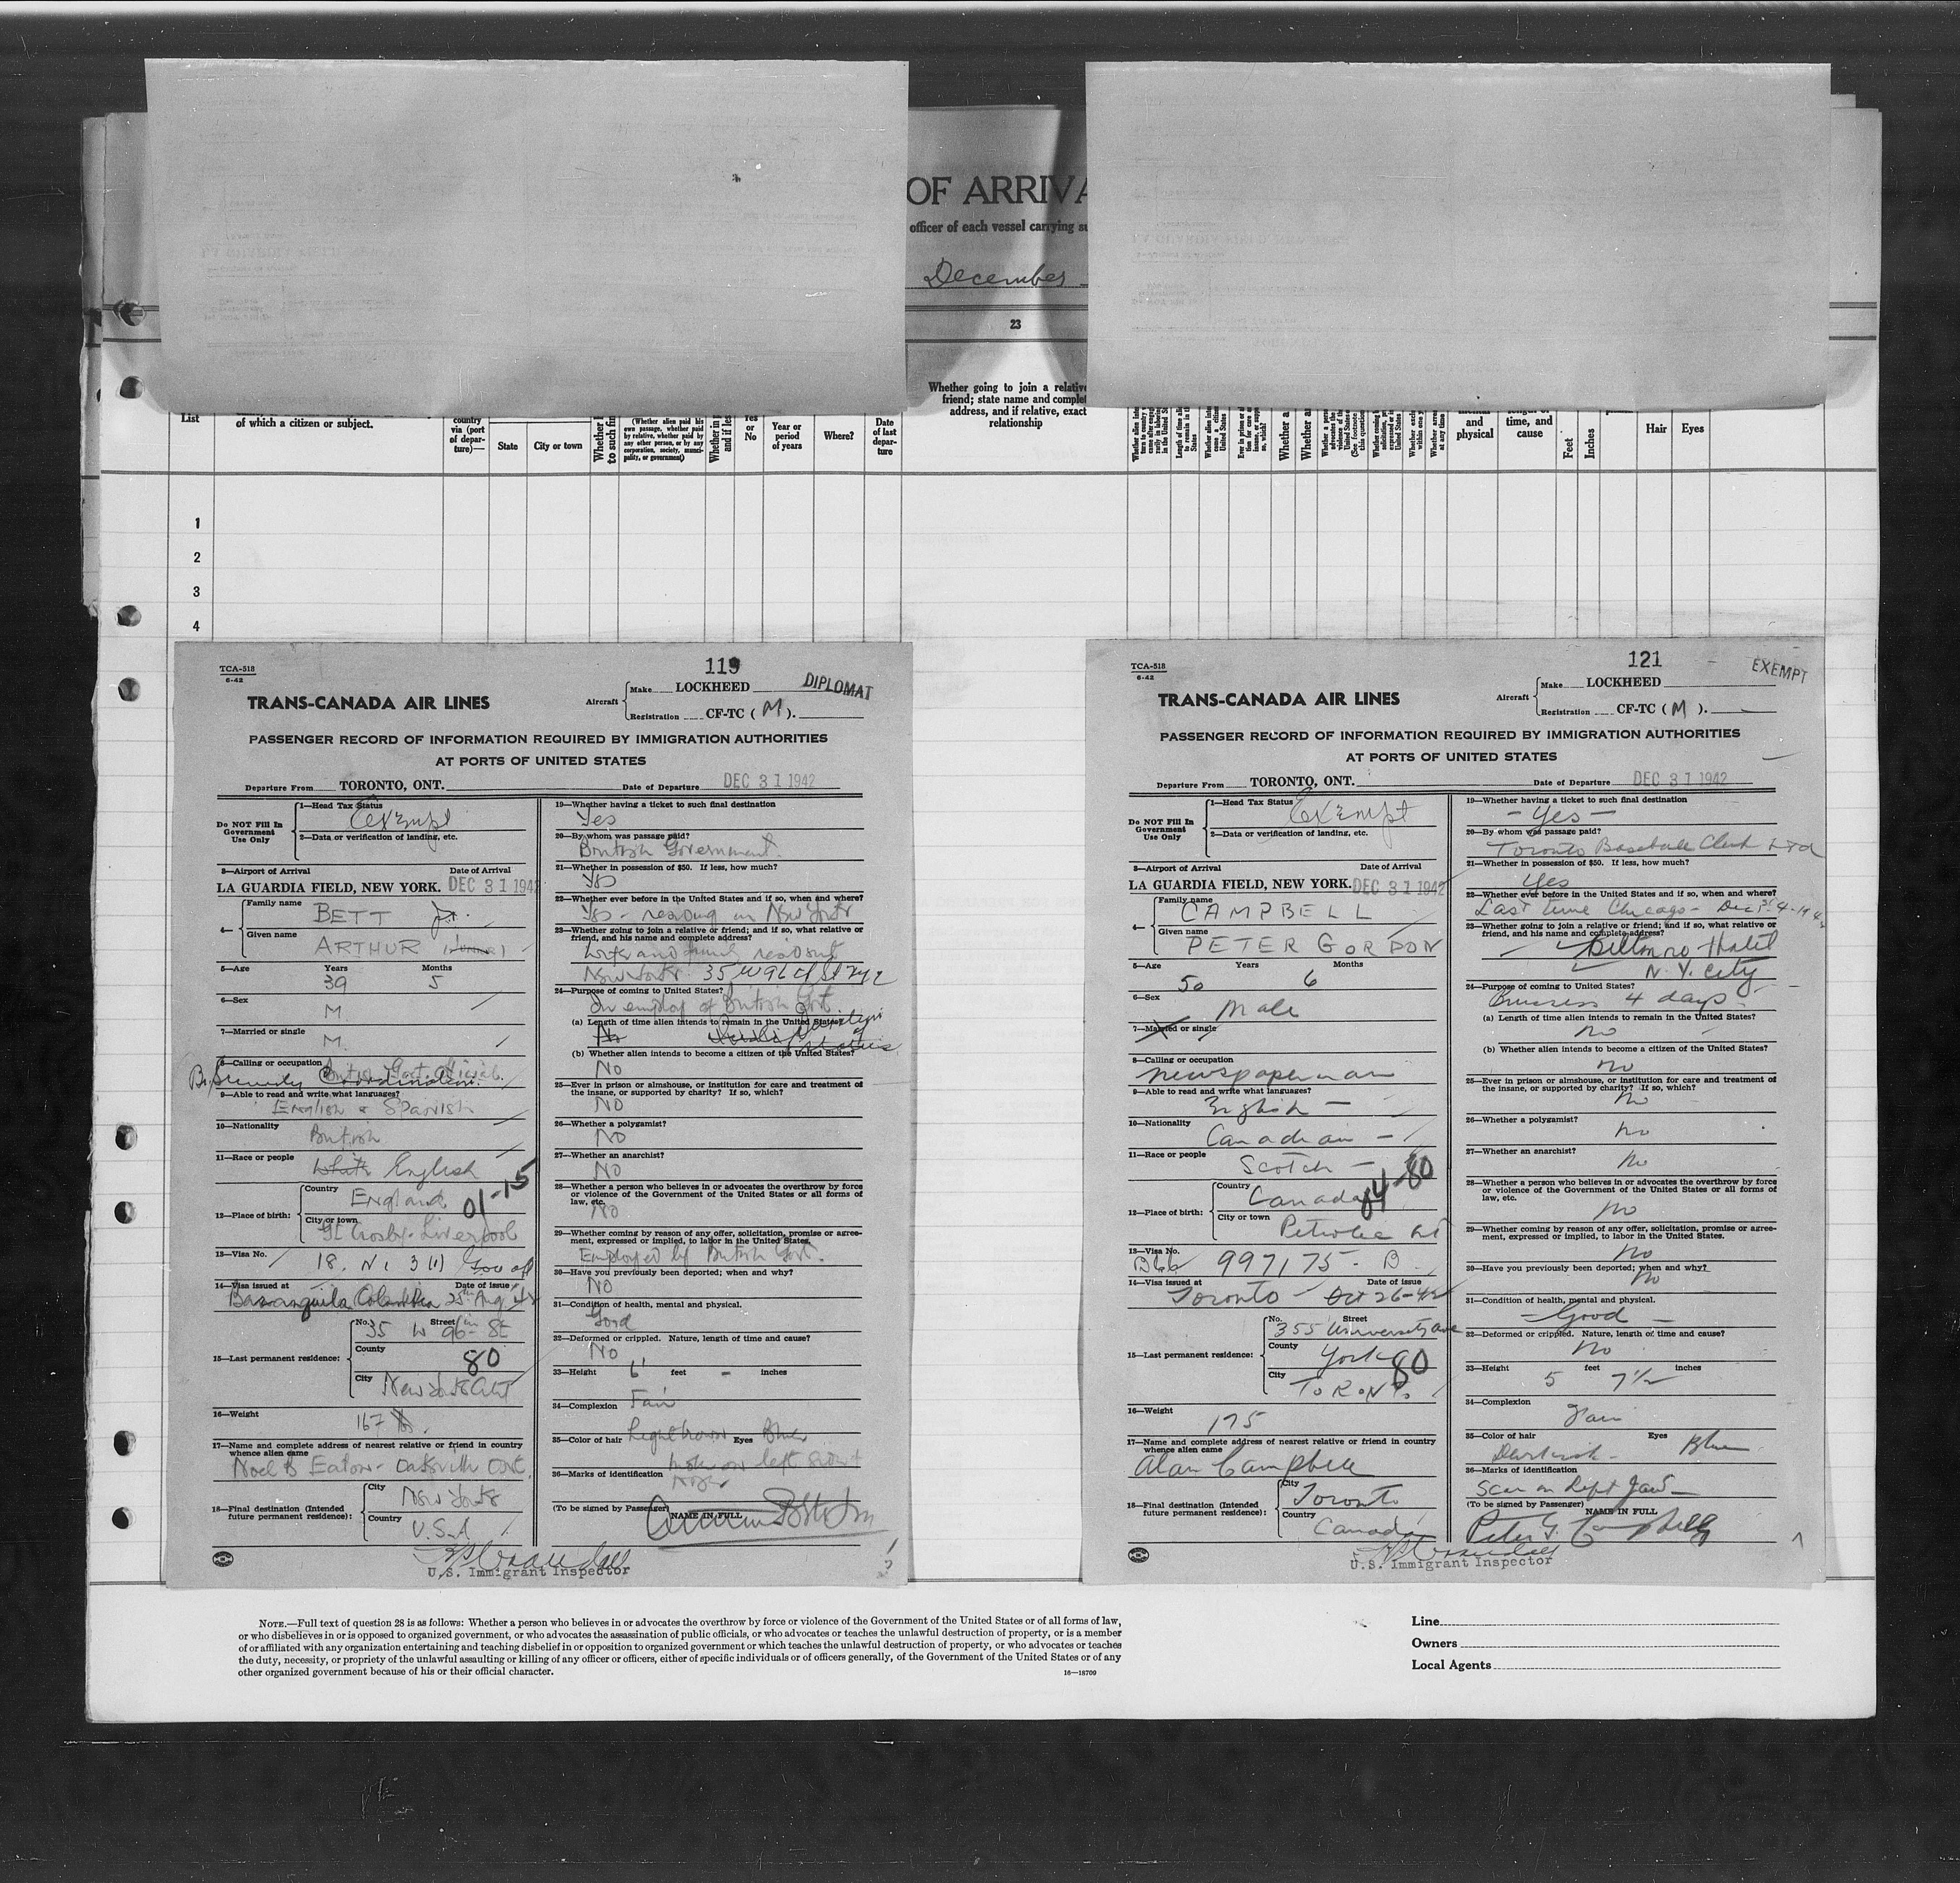 OF ARRIVA
officer of each vessel carrying
December
23
Whether going to join a relative
friend; state name and complet
address, and if relative, exact
relationship
List
of which a citizen or subject.
country
via (port
of depar-
ture)—
State
City or town
(Whether alien paid his
own passage, whether paid
by relative, whether paid
by any other person, or by any
corporation, society, munici-
pality, or government)
or
No
Year or
period
of years
Where?
Date
of last
depar-
ture
and
physical
time, and
cause
Feet
Inches
Hair
Eyes
1
2
3
4
TCA-518
6-42
119
DIPLOMAT
TRANS-CANADA AIR LINES
Aircraft
Make LOCKHEED
Registration CF-TC (M).
PASSENGER RECORD OF INFORMATION REQUIRED BY IMMIGRATION AUTHORITIES
AT PORTS OF UNITED STATES
Departure From TORONTO, ONT. Date of Departure DEC 31 1942
Do NOT Fill In
Government
Use Only
1—Head Tax Status
Exempt
2—Data or verification of landing, etc.
3—Airport of Arrival Date of Arrival
LA GUARDIA FIELD, NEW YORK. DEC 31 1942
4—
Family name
BETT Jr.
Given name
ARTHUR
5—Age Years Months
39 5
6—Sex
M.
7—Married or single
M.
8—Calling or occupation
British Govt. Official
Br. Security Coordination
9—Able to read and write what languages?
English & Spanish
10—Nationality
British
11—Race or people
White English
12—Place of birth:
Country
England
01-15
City or town
Gt Crosby - Liverpool
13—Visa No.
18. N. 3 (1) Gov off
14—Visa issued at Date of issue
Barranquila Colombia 25th Aug 42
15—Last permanent residence:
No. Street
35 W 96th St
County
80
City
New York City
16—Weight
167
17—Name and complete address of nearest relative or friend in country
whence alien came
Noel B Eaton - Oakville Ont.
18—Final destination (Intended
future permanent residence):
City
New York
Country
U.S.A
19—Whether having a ticket to such final destination
Yes
20—By whom was passage paid?
British Government.
21—Whether in possession of $50. If less, how much?
Yes
22—Whether ever before in the United States and if so, when and where?
Yes - residing in New York
23—Whether going to join a relative or friend; and if so, what relative or
friend, and his name and complete address?
Wife and family resident
New York. 35 W 96th St NYC
24—Purpose of coming to United States?
In employ of British Govt.
(a) Length of time alien intends to remain in the United States?
(b) Whether alien intends to become a citizen of the United States?
No
25—Ever in prison or almshouse, or institution for care and treatment of
the insane, or supported by charity? If so, which?
No
26—Whether a polygamist?
No
27—Whether an anarchist?
No
28—Whether a person who believes in or advocates the overthrow by force
or violence of the Government of the United States or all forms of
law, etc.
No
29—Whether coming by reason of any offer, solicitation, promise or agree-
ment, expressed or implied, to labor in the United States.
Employed by British Govt.
30—Have you previously been deported; when and why?
No
31—Condition of health, mental and physical.
Good
32—Deformed or crippled. Nature, length of time and cause?
No
33—Height 6' feet - inches
34—Complexion Fair
35—Color of hair Light brown Eyes Blue
36—Marks of identification Mole on left side of
Nose
(To be signed by Passenger)
NAME IN FULL
U.S. Immigrant Inspector
TCA-518
6-42
121
EXEMPT
TRANS-CANADA AIR LINES
Aircraft
Make LOCKHEED
Registration CF-TC (M).
PASSENGER RECORD OF INFORMATION REQUIRED BY IMMIGRATION AUTHORITIES
AT PORTS OF UNITED STATES
Departure From TORONTO, ONT. Date of Departure DEC 31 1942
Do NOT Fill In
Government
Use Only
1—Head Tax Status
Exempt
2—Data or verification of landing, etc.
3—Airport of Arrival Date of Arrival
LA GUARDIA FIELD, NEW YORK. DEC 31 1942
4—
Family name
CAMPBELL
Given name
PETER GORDON
5—Age Years Months
50 6
6—Sex
Male
7—Married or single
8—Calling or occupation
Newspaperman
9—Able to read and write what languages?
English —
10—Nationality
Canadian —
11—Race or people
Scotch —
12—Place of birth:
Country
Canada
04-80
City or town
Petrolea Ont
13—Visa No.
B66 997175 - B.
14—Visa issued at Date of issue
Toronto - Oct 26-42
15—Last permanent residence:
No. Street
355 University Ave
County
York
80
City
TORONTO
16—Weight
175
17—Name and complete address of nearest relative or friend in country
whence alien came
Alan Campbell
18—Final destination (Intended
future permanent residence):
City
Toronto
Country
Canada
19—Whether having a ticket to such final destination
- Yes -
20—By whom was passage paid?
Toronto Baseball Club Ltd
21—Whether in possession of $50. If less, how much?
Yes
22—Whether ever before in the United States and if so, when and where?
Last time Chicago - Dec 1st 4 - 1942
23—Whether going to join a relative or friend; and if so, what relative or
friend, and his name and complete address?
Biltmore Hotel
N.Y. City
24—Purpose of coming to United States?
Business 4 days
(a) Length of time alien intends to remain in the United States?
No
(b) Whether alien intends to become a citizen of the United States?
No
25—Ever in prison or almshouse, or institution for care and treatment of
the insane, or supported by charity? If so, which?
No
26—Whether a polygamist?
No
27—Whether an anarchist?
No
28—Whether a person who believes in or advocates the overthrow by force
or violence of the Government of the United States or all forms of
law, etc.
No
29—Whether coming by reason of any offer, solicitation, promise or agree-
ment, expressed or implied, to labor in the United States.
No
30—Have you previously been deported; when and why?
No
31—Condition of health, mental and physical.
- Good -
32—Deformed or crippled. Nature, length of time and cause?
No
33—Height 5 feet 7 1/2 inches
34—Complexion
Fair
35—Color of hair Eyes
Darkish - Blue
36—Marks of identification
Scar on Left Jaw -
(To be signed by Passenger) NAME IN FULL
Peter G. Campbell
U.S. Immigrant Inspector
NOTE.—Full text of question 28 is as follows: Whether a person who believes in or advocates the overthrow by force or violence of the Government of the United States or of all forms of law,
or who disbelieves in or is opposed to organized government, or who advocates the assassination of public officials, or who advocates or teaches the unlawful destruction of property, or is a member
of or affiliated with any organization entertaining and teaching disbelief in or opposition to organized government or which teaches the unlawful destruction of property, or who advocates or teaches
the duty, necessity, or propriety of the unlawful assaulting or killing of any officer or officers, either of specific individuals or of officers generally, of the Government of the United States or of any
other organized government because of his or their official character.
16—18709
Line
Owners
Local Agents